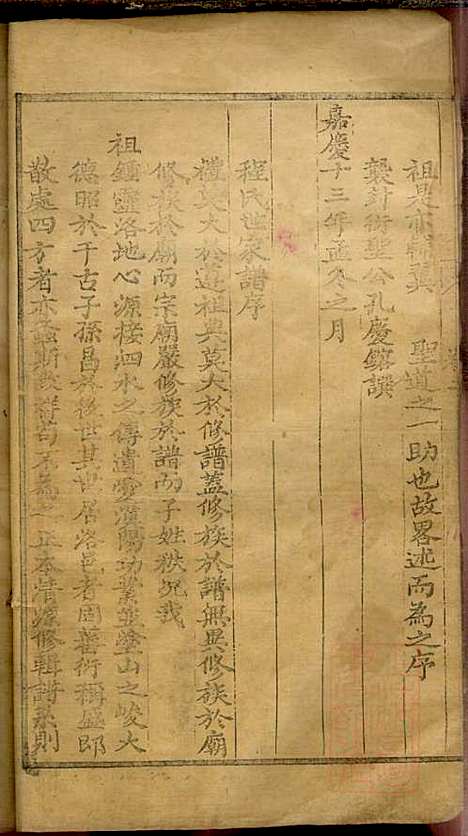 祖是亦 聖道之一助也故畧述而為之序
襲封衍聖公孔慶鎔譔
嘉慶十三年孟冬之月
程氏世家譜序
禮莫大於尊祖典莫大於修譜蓋修族於譜無異修族於廟
修族於廟而宗廟嚴修族於譜而子姓秩況我
祖鍾靈洛地心源接泗水之傳遺 濱陽功業並塗山之峻大
德昭於千古子孫昌於後世其世居洛邑者固蕃衍稱盛即
散處四方者亦螽斯 苟不為之 正本 源修輯譜系則